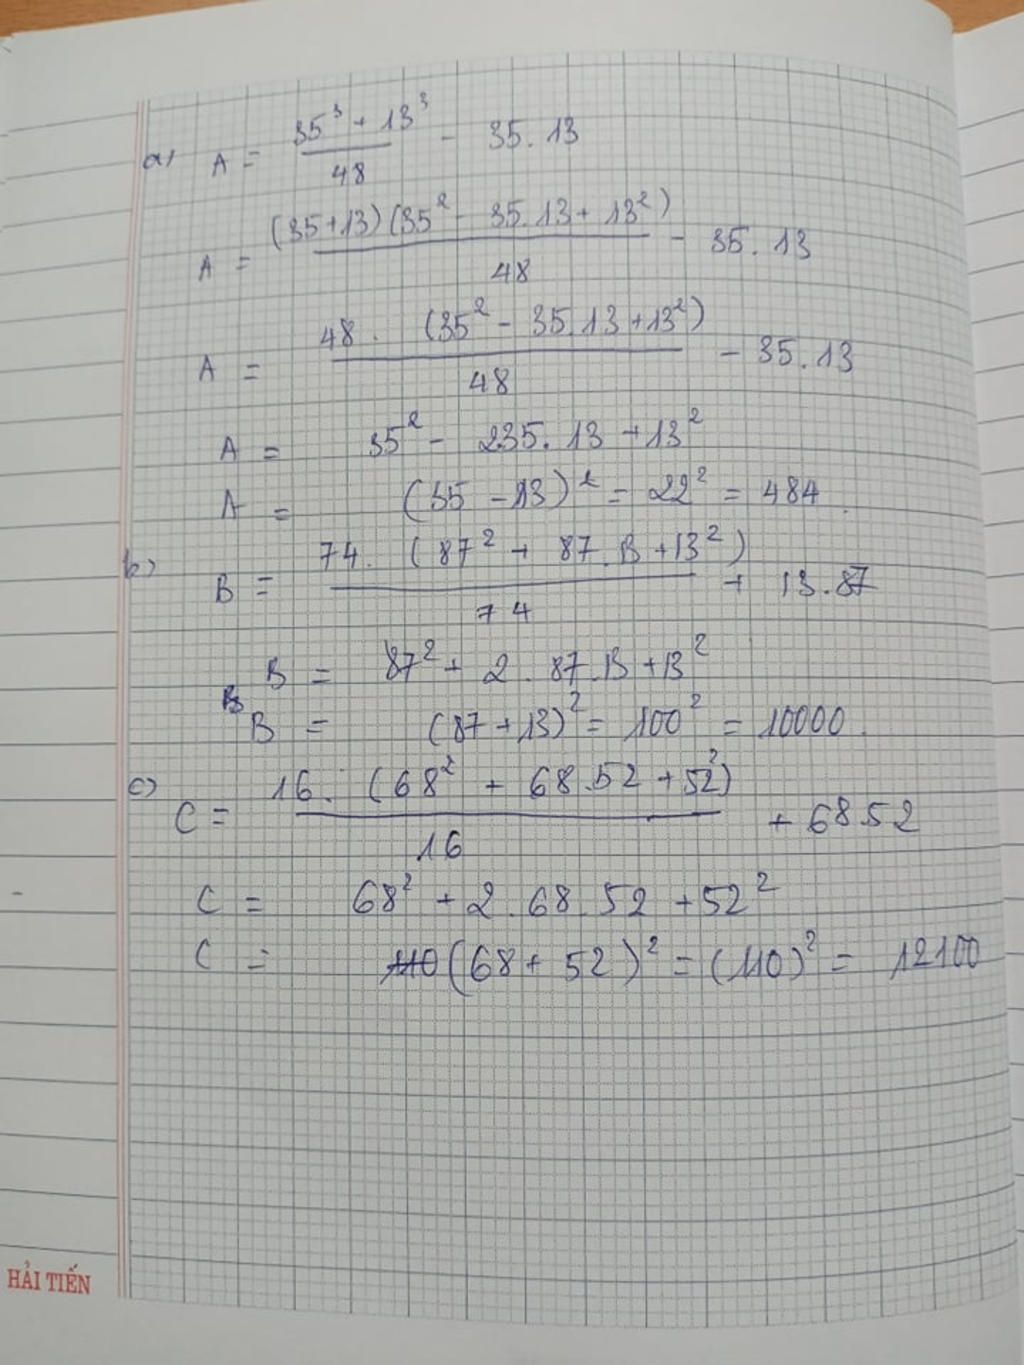 a) A = 35³ + 13³ / 48 - 35.13
A = (35+13)(35² - 35.13 + 13²) / 48 - 35.13
A = 48. (35² - 35.13 + 13²) / 48 - 35.13
A = 35² - 235.13 + 13²
A = (35 - 13)² = 22² = 484
b) B = 74. (87² + 87.13 + 13²) / 74 + 13.87
B = 87² + 2.87.13 + 13²
B B = (87 + 13)² = 100² = 10000.
c) C = 16. (68² + 68.52 + 52²) / 16 + 68.52
C = 68² + 2.68.52 + 52²
C = 110 (68 + 52)² = (110)² = 12100
HẢI TIẾN